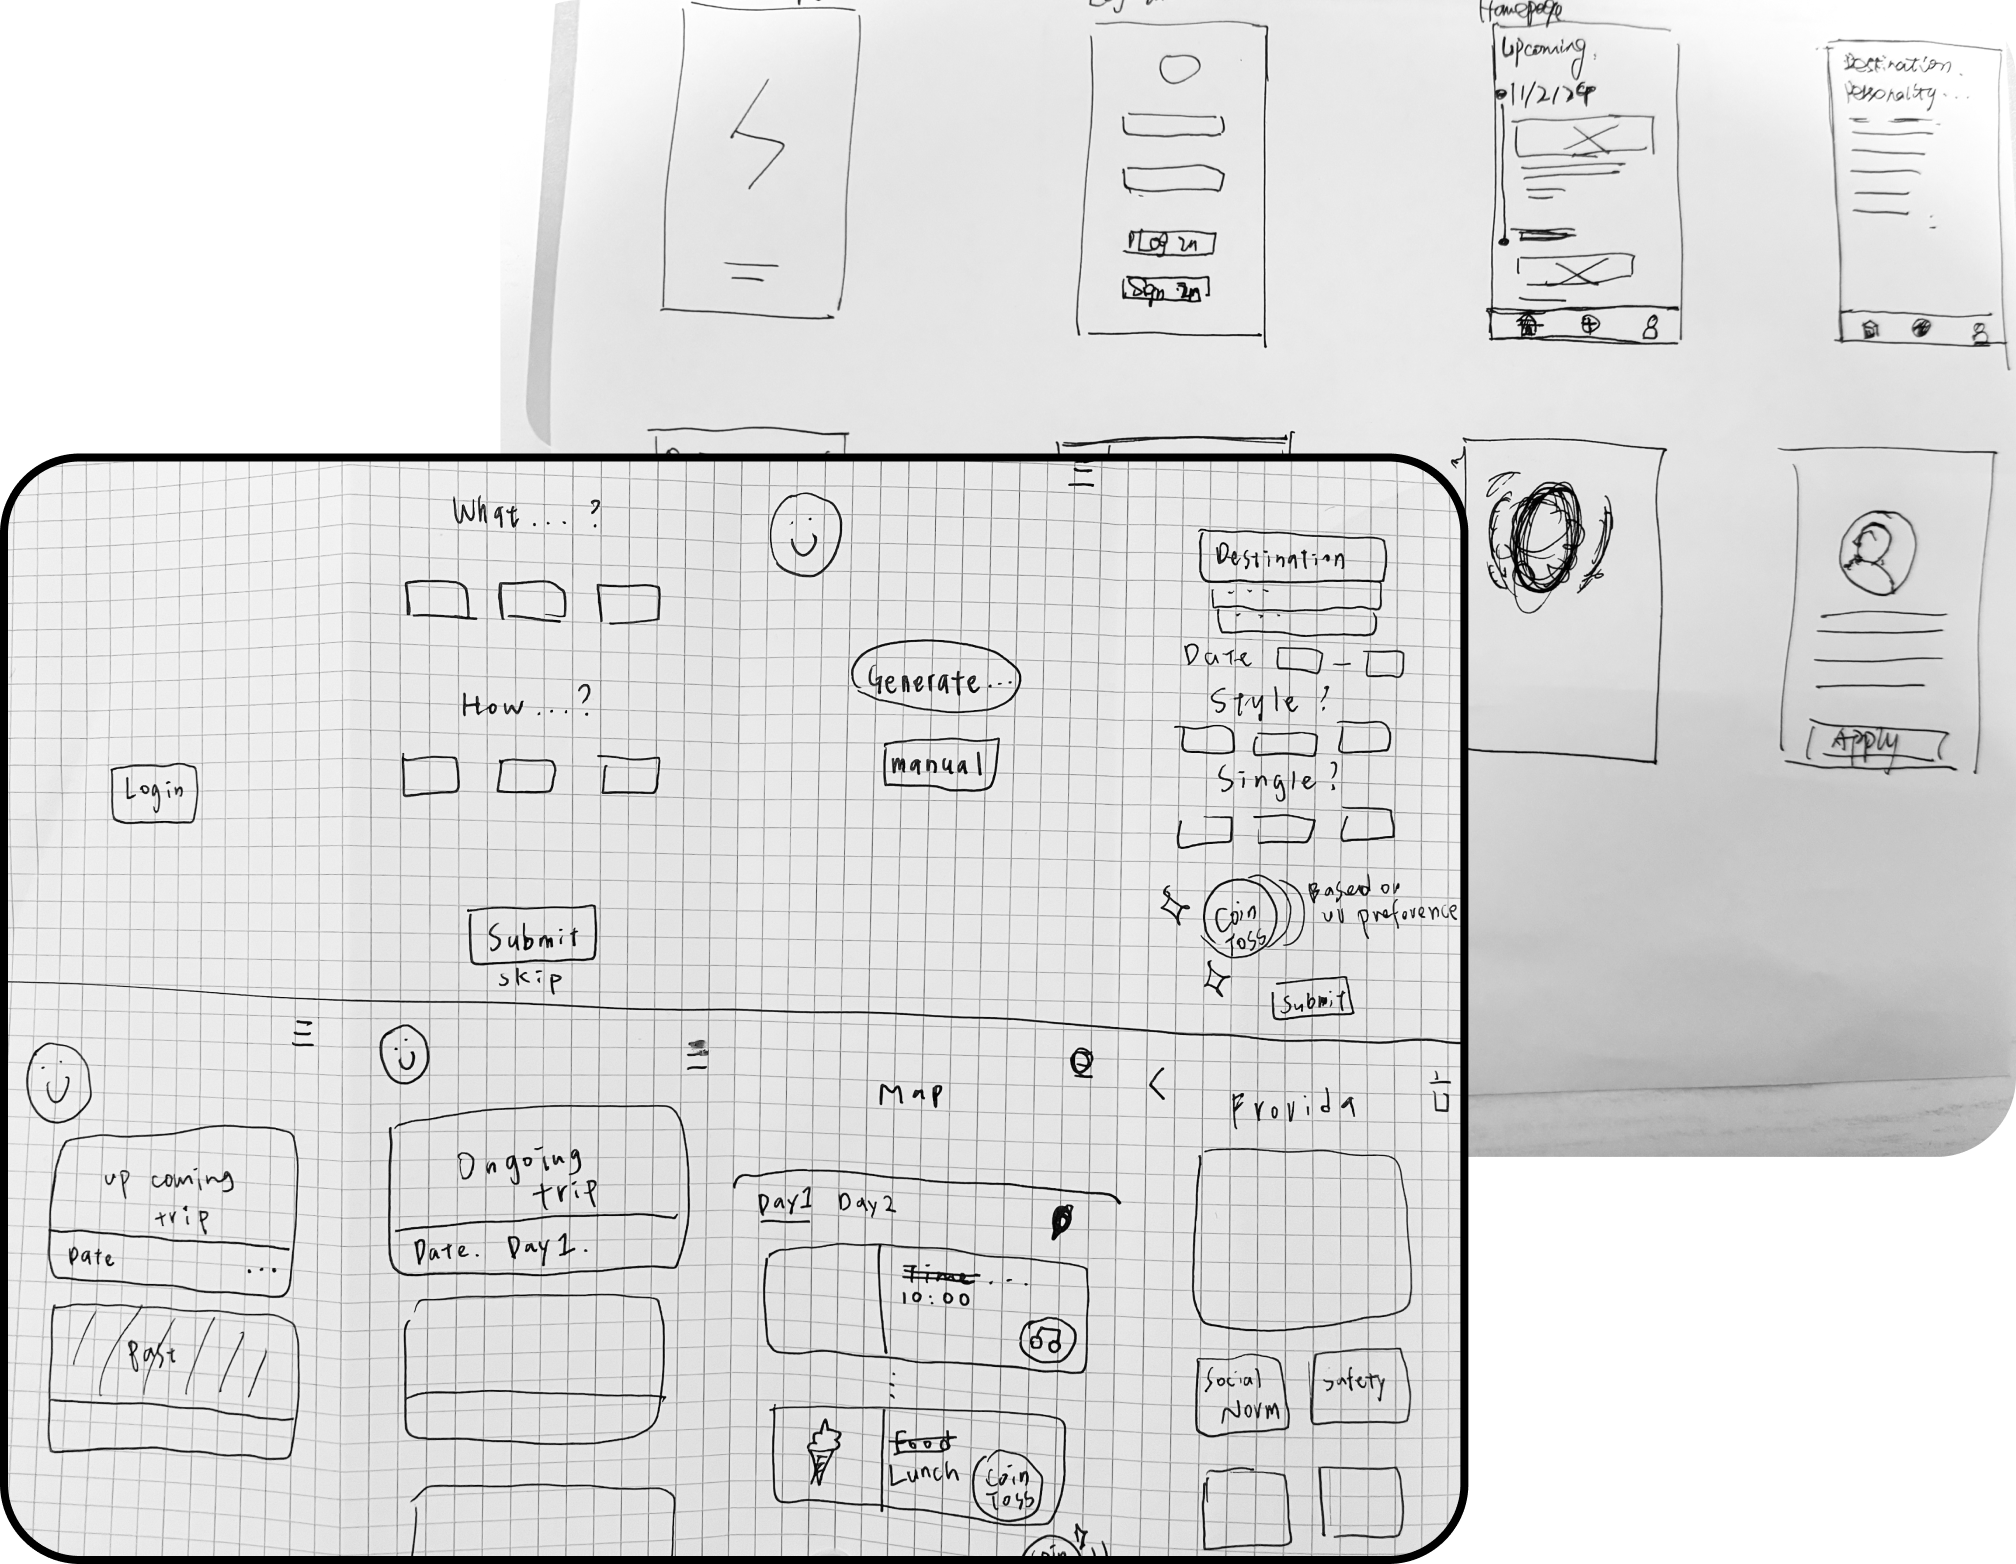 Homepage
Upcoming.
11/2/24
Log in
Sign in
Destination.
Personality...
Apply
Login
What....?
How....?
Submit
skip
Generate...
manual
Destination
...
...
Date –
Style?
Single?
Coin
Toss
Based on
ur preference
Submit
up coming
trip
Date ...
Past
Ongoing
trip
Date. Day1.
Map
Day1 Day2
Time...
10:00
Food
Lunch
Coin
Toss
Coin
Frorida
Social
Norm
Safety